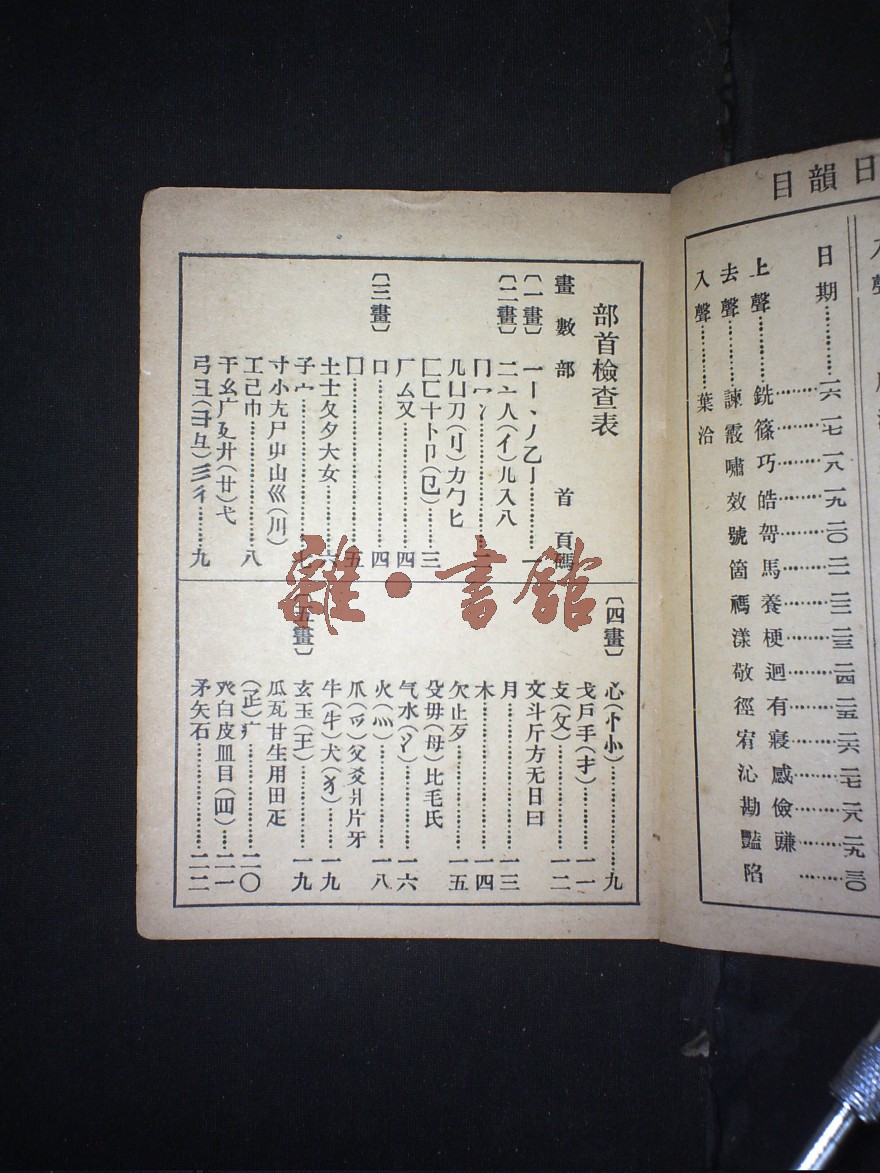 日韻目
日期……一六 一七 一八 一九 二〇 二一 二二 二三 二四 二五 二六 二七 二八 二九 三〇
上聲……銑 篠 巧 皓 哿 馬 養 梗 迥 有 寢 感 儉 豏
去聲……諫 霰 嘯 效 號 箇 禡 漾 敬 徑 宥 沁 勘 豔 陷
入聲……葉 洽
部首檢查表
畫數 部首 頁碼
〔一畫〕一丨丶丿乙亅……一
〔二畫〕二亠人(亻)儿入八
冂冖冫……二
几凵刀(刂)力勹匕
匚匸十卜卩(㔾)……三
厂厶又……四
〔三畫〕口……四
囗……五
土士夂夊夕大女……六
子宀……七
寸小尢尸屮山巛(川)
工己巾……八
干幺广廴廾(廿)弋
弓彐(彑)彡彳……九
〔四畫〕心(忄㣺)……九
戈戶手(扌)……一一
攴(攵)……一二
文斗斤方无日曰
月……一三
木……一四
欠止歹……一五
殳毋(母)比毛氏
气水(氵)……一六
火(灬)……一八
爪(爫)父爻爿片牙
牛(牜)犬(犭)……一九
〔五畫〕玄玉(王)……一九
瓜瓦甘生用田疋
(𤴔)疒……二〇
癶白皮皿目(罒)……二一
矛矢石……二二
雜·書館